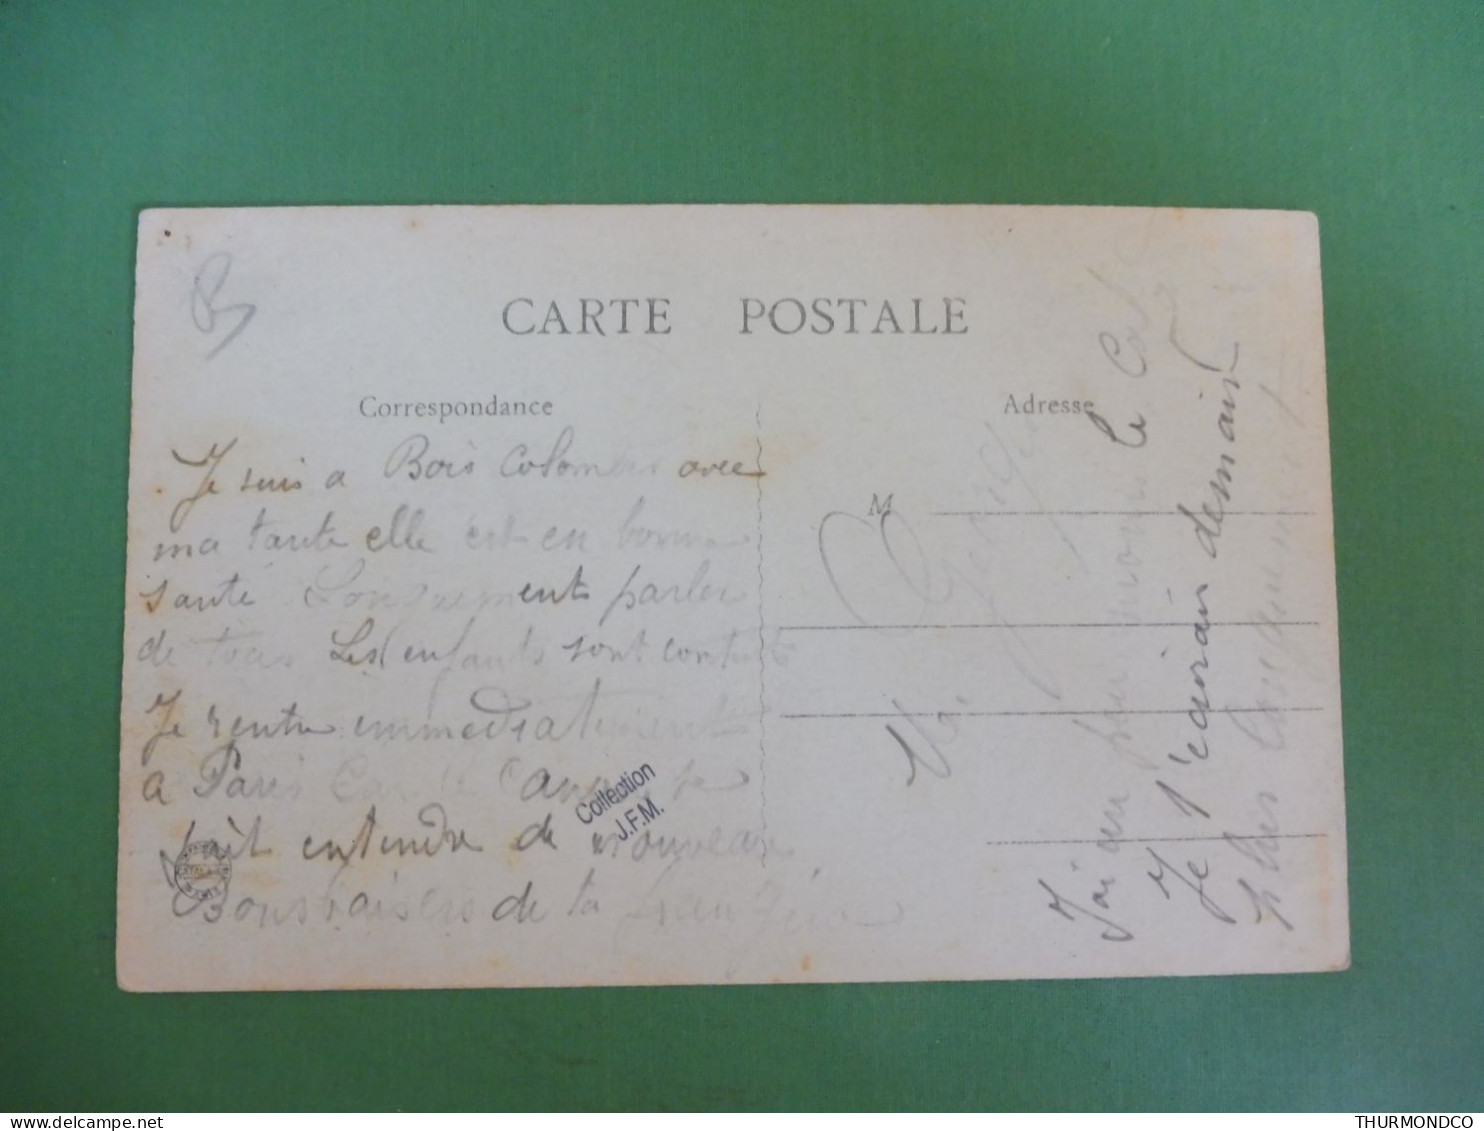 CARTE POSTALE
Correspondance
Adresse
M
Je suis a Bois Colombes avec
ma tante elle est en bonne
santé Longuement parler
de tous Les enfants sont contents
Je rentre immediatement
a Paris Car le Canon se
fait entendre de nouveau
Bons baisers de ta
Collection
J.F.M.
J'ai au le
Je t'ecrirai demain
plus longuement
THURMONDCO